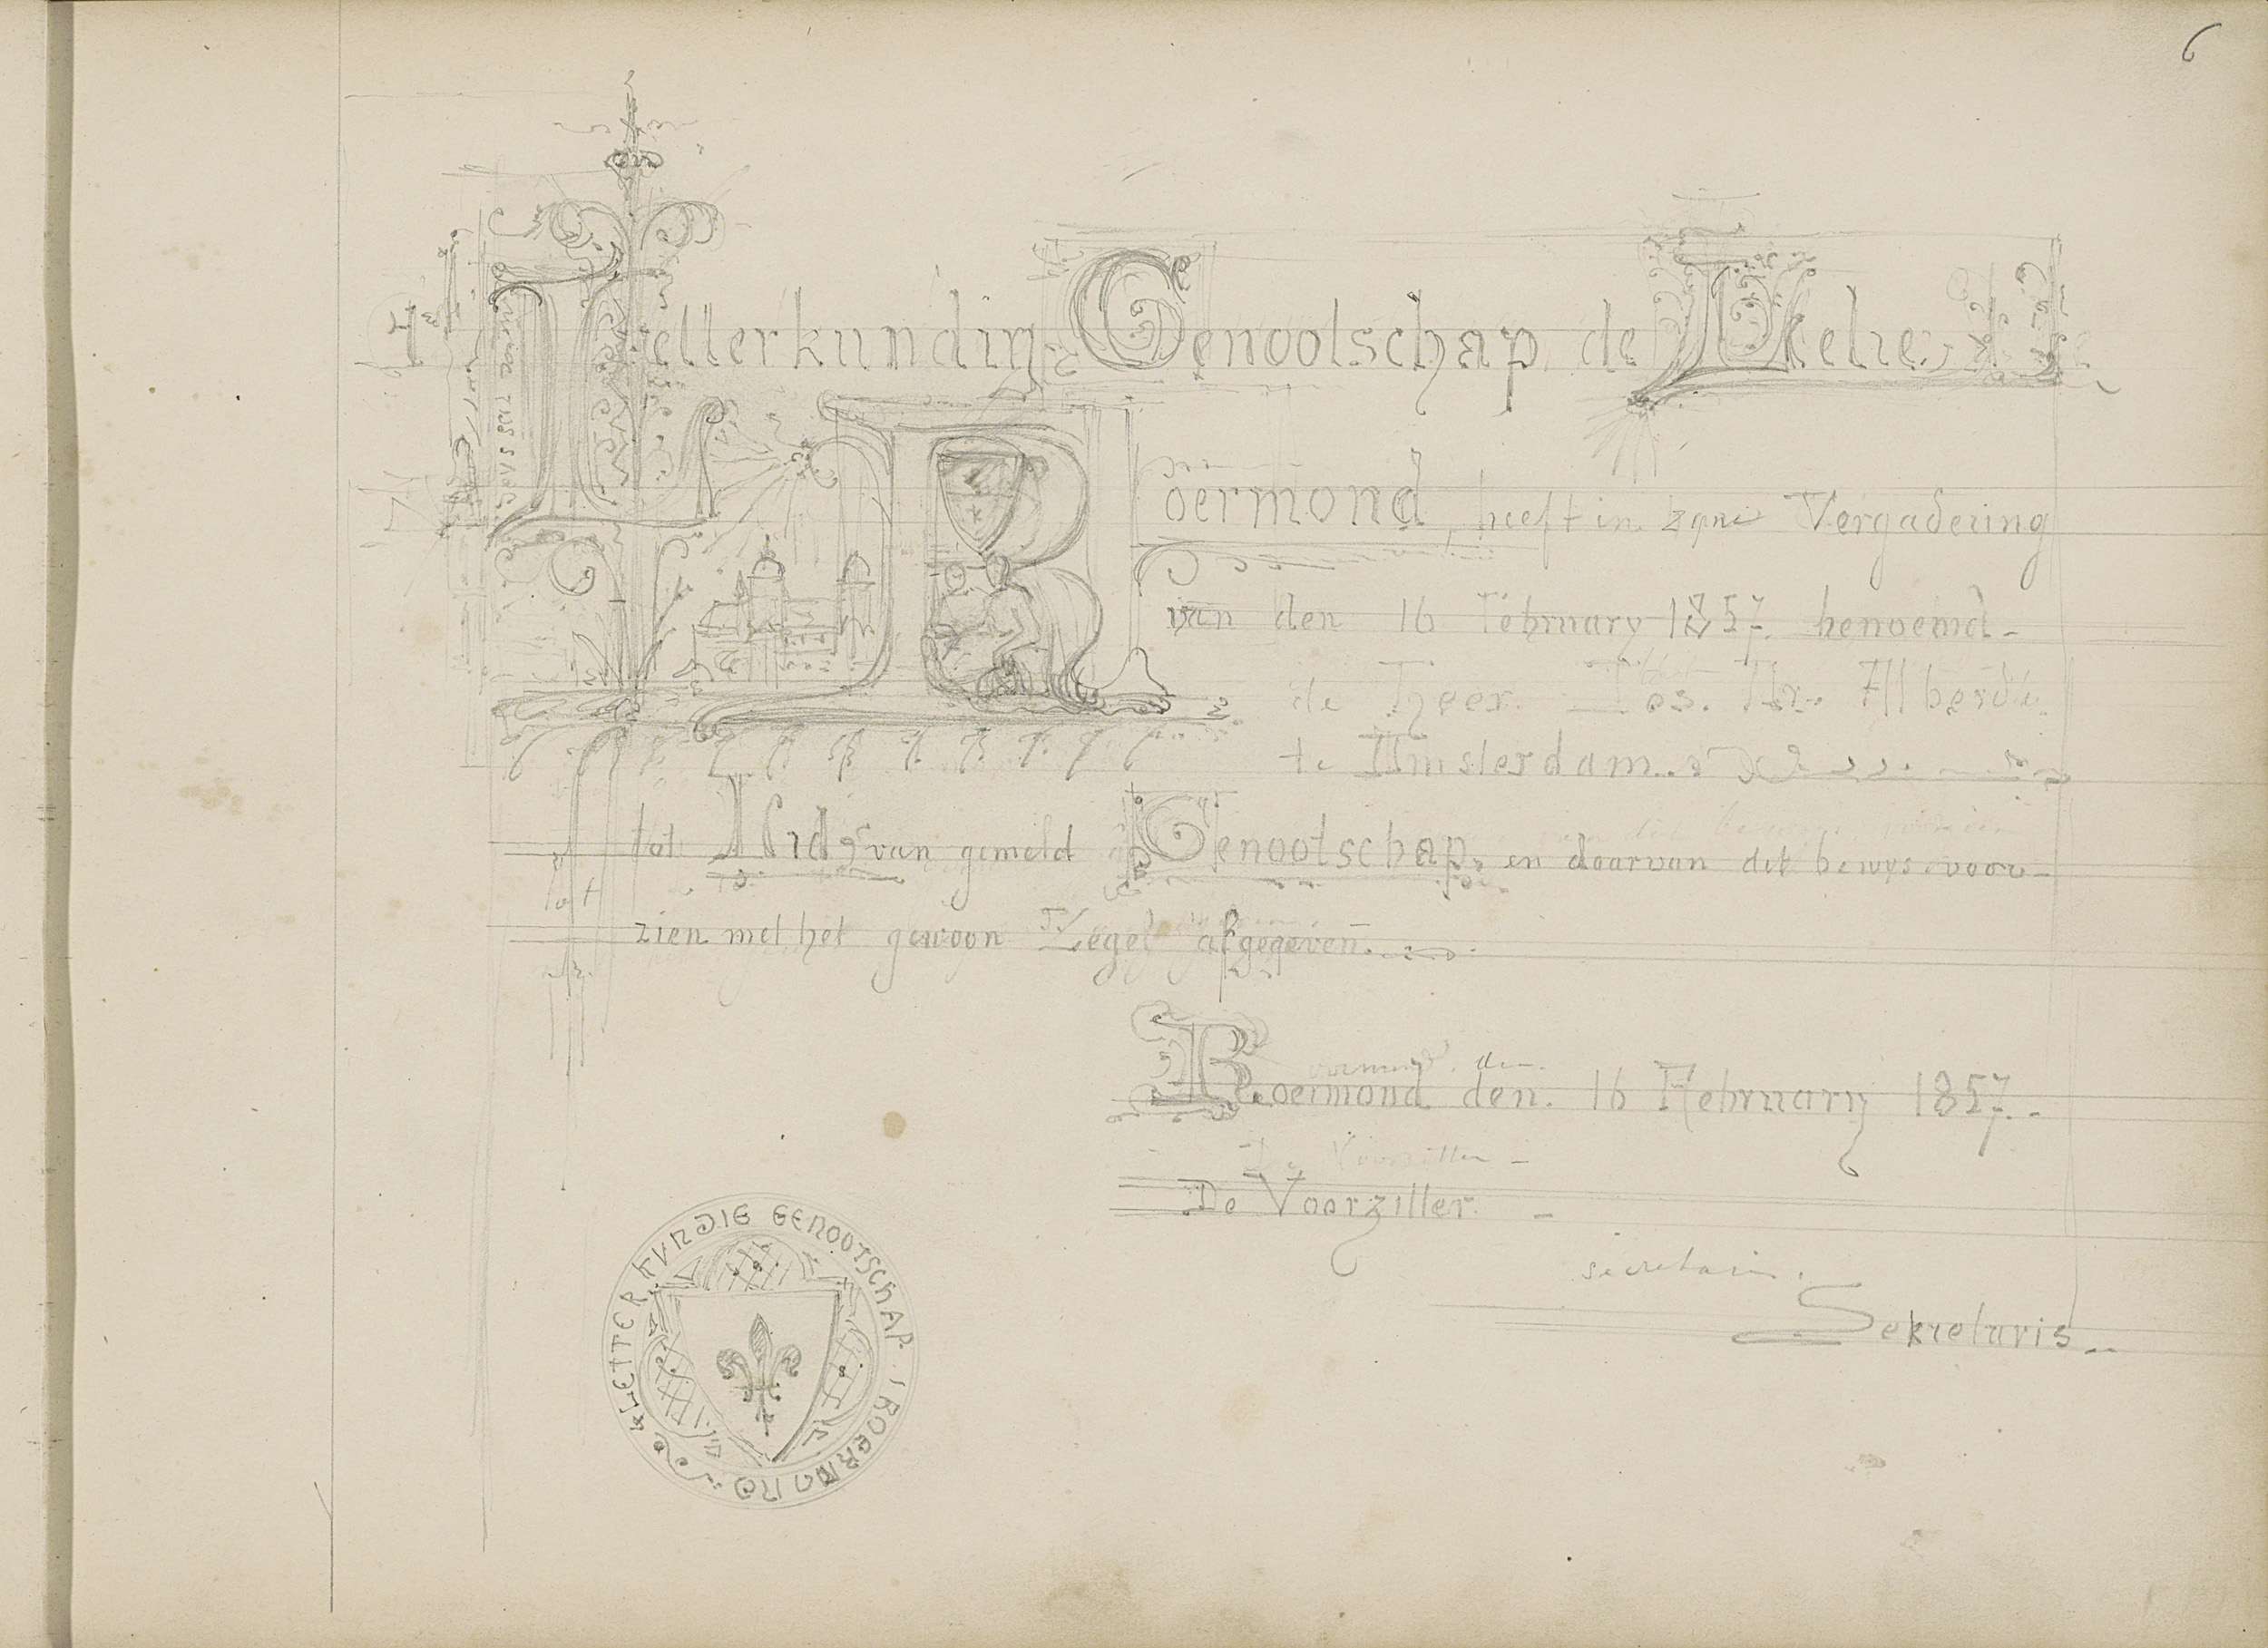 6
't Letterkundig Genootschap de Lelie te
Roermond, heeft in zyne Vergadering
van den 16 February 1857 benoemd -
de Heer Jos. Alberdi
te Amsterdam
tot Lid van gemeld Genootschap, en daarvan dit bewys voor-
zien met het gewoon Zegel afgegeven.
Roermond den. 16 February 1857. -
De Voorzitter -
De Voorzitter. -
secretaris.
Sekretaris
LETTERKUNDIG GENOOTSCHAP ROERMOND